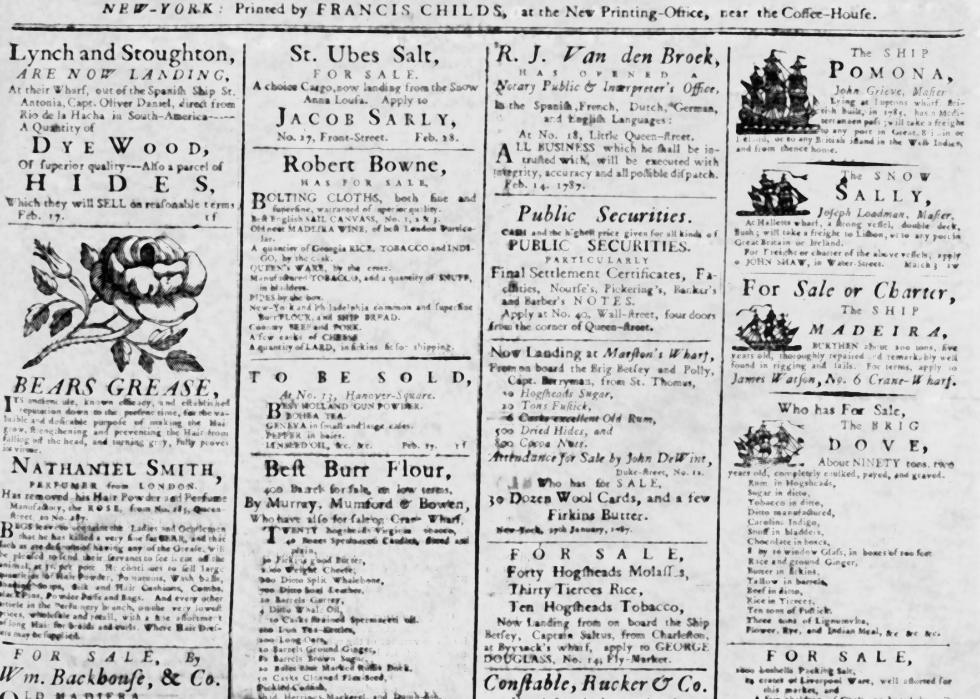 NEW-YORK: Printed by FRANCIS CHILDS, at the New Printing-Office, near the Coffee-House.
Lynch and Stoughton,
ARE NOW LANDING,
At their Wharf, out of the Spanish Ship St.
Antonia, Capt. Oliver Daniel, direct from
Rio de la Hacha in South-America-----
A Quantity of
DYE WOOD,
Of superior quality---Also a parcel of
HIDES,
Which they will SELL on reasonable terms
Feb. 17. tf
BEARS GREASE,
ITS known use, known efficacy, and established
reputation down to the present time, for the va-
luable and desirable purpose of making the Hair
grow, strengthening and preventing the Hair from
falling off the head, and turning grey, fully proves
its virtue.
NATHANIEL SMITH,
PERFUMER from LONDON.
Has removed his Hair Powder and Perfume
Manufactory, the ROSE, from No. 185, Queen-
street, to No. 287.
BEGS leave to the Ladies and Gentlemen
that he has killed a very fine fat BEAR, and that
such as are desirous of having any of the Grease, will
be pleased to send their servants to see it cut off the
animal, at per pot. He continues to sell large
quantities of Hair Powder, Pomatums, Wash balls,
Silk and Hair Cushions, Combs,
black Pins, Powder Puffs and Bags. And every other
article in the Perfumery branch, on the very lowest
prices, wholesale and retail, with a fine assortment
of long Hair for braids and curls. Where Hair Dres-
sers may be supplied.
FOR SALE, By
Wm. Backhouse, & Co.
OLD MADEIRA
St. Ubes Salt,
FOR SALE.
A choice Cargo, now landing from the Snow
Anna Loufa. Apply to
JACOB SARLY,
No. 17, Front-Street. Feb. 28.
Robert Bowne,
HAS FOR SALE,
BOLTING CLOTHS, both fine and
superfine, warranted of superior quality.
Best English SAIL CANVASS, No. 1, 2 & 3.
Old neat MADEIRA WINE, of best London Particu-
lar.
A quantity of Georgia RICE, TOBACCO and INDI-
GO, by the cask.
QUEEN'S WARE, by the crate.
Manufactured TOBACCO, and a quantity of SNUFF,
in bladders.
PIPES by the box.
New-York and Philadelphia common and superfine
Burr FLOUR, and SHIP BREAD.
Country BEEF and PORK.
A few casks of CHEESE
A quantity of LARD, in firkins fit for shipping.
TO BE SOLD,
At No. 13, Hanover-Square.
BEST HOLLAND GUN POWDER.
BOHEA TEA.
GENEVA in small and large cases.
PEPPER in bales.
LINSEED OIL, &c. &c. Feb. 17. tf
Best Burr Flour,
400 Barrels for sale, on low terms,
By Murray, Mumford & Bowen,
Who have also for sale on Crane Wharf,
TWENTY hogsheads Virginia tobacco,
40 Boxes Spermaceti Candles,
plain,
30 Firkins good Butter,
Weight Cheese,
Ditto Split Whalebone,
Ditto Soal Leather,
Barrels
4 Ditto Whale Oil,
10 Casks Strained Spermaceti oil.
200 Iron Tea-Kettles,
Long Corn,
20 Barrels Ground Ginger,
80 Barrels Brown Sugar,
Blue Marked Russia Duck,
50 Casks Cleaned Flax-Seed,
Pickled Codfish,
Herrings, Mackerel,
R. J. Van den Broek,
HAS OPENED A
Notary Public & Interpreter's Office,
In the Spanish, French, Dutch, German,
and English Languages:
At No. 18, Little Queen-street.
ALL BUSINESS which he shall be in-
trusted with, will be executed with
integrity, accuracy and all possible dispatch.
Feb. 14. 1787.
Public Securities.
CASH and the highest price given for all kinds of
PUBLIC SECURITIES.
PARTICULARLY
Final Settlement Certificates, Fa-
cilities, Nourse's, Pickering's, Banker's
and Barber's NOTES.
Apply at No. 40, Wall-street, four doors
from the corner of Queen-street.
Now Landing at Marston's Wharf,
From on board the Brig Betsey and Polly,
Capt. Berryman, from St. Thomas,
10 Hogsheads Sugar,
20 Tons Fustick,
6 Casks excellent Old Rum,
500 Dried Hides, and
800 Cocoa Nuts.
Attendance for Sale by John DeWint,
Duke-street, No. 12.
Who has for SALE,
30 Dozen Wool Cards, and a few
Firkins Butter.
New-York, 27th January, 1787.
FOR SALE,
Forty Hogsheads Molasses,
Thirty Tierces Rice,
Ten Hogsheads Tobacco,
Now Landing from on board the Ship
Betsey, Captain Saltus, from Charleston,
at Byvanck's wharf, apply to GEORGE
DOUGLASS, No. 14, Fly-Market.
Constable, Rucker & Co.
The SHIP
POMONA,
John Grieve, Master
Lying at Luptons wharf, Bri-
tish built, in 1785, has a Medi-
terranean pass; will take a freight
to any port in Great Britain or
Ireland, or to any British island in the West Indies,
and from thence home.
The SNOW
SALLY,
Joseph Loadman, Master,
At Halletts wharf, a strong vessel, double deck,
flush; will take a freight to Lisbon, or to any port in
Great Britain or Ireland.
For Freight or charter of the above vessels, apply
to JOHN SHAW, in Water-Street. March 3
For Sale or Charter,
The SHIP
MADEIRA,
BURTHEN about 200 tons, five
years old, thoroughly repaired and remarkably well
found in rigging and sails. For terms, apply to
James Watson, No. 6 Crane-Wharf.
Who has For Sale,
The BRIG
DOVE,
About NINETY tons, two
years old, completely caulked, payed, and graved.
Rum in Hogsheads,
Sugar in ditto,
Tobacco in ditto,
Ditto manufactured,
Carolina Indigo,
Snuff in bladders,
Chocolate in boxes,
8 by 10 window Glass, in boxes of 100 feet
Rice and ground Ginger,
Butter in firkins,
Tallow in barrels,
Beef in ditto,
Rice in Tierces,
Ten tons of Fustick,
Three tons of Lignumvitæ,
Flower, Rye, and Indian Meal, &c &c &c.
FOR SALE,
bushells Packing Salt,
crates of Liverpool Ware, well assorted for
this market, and